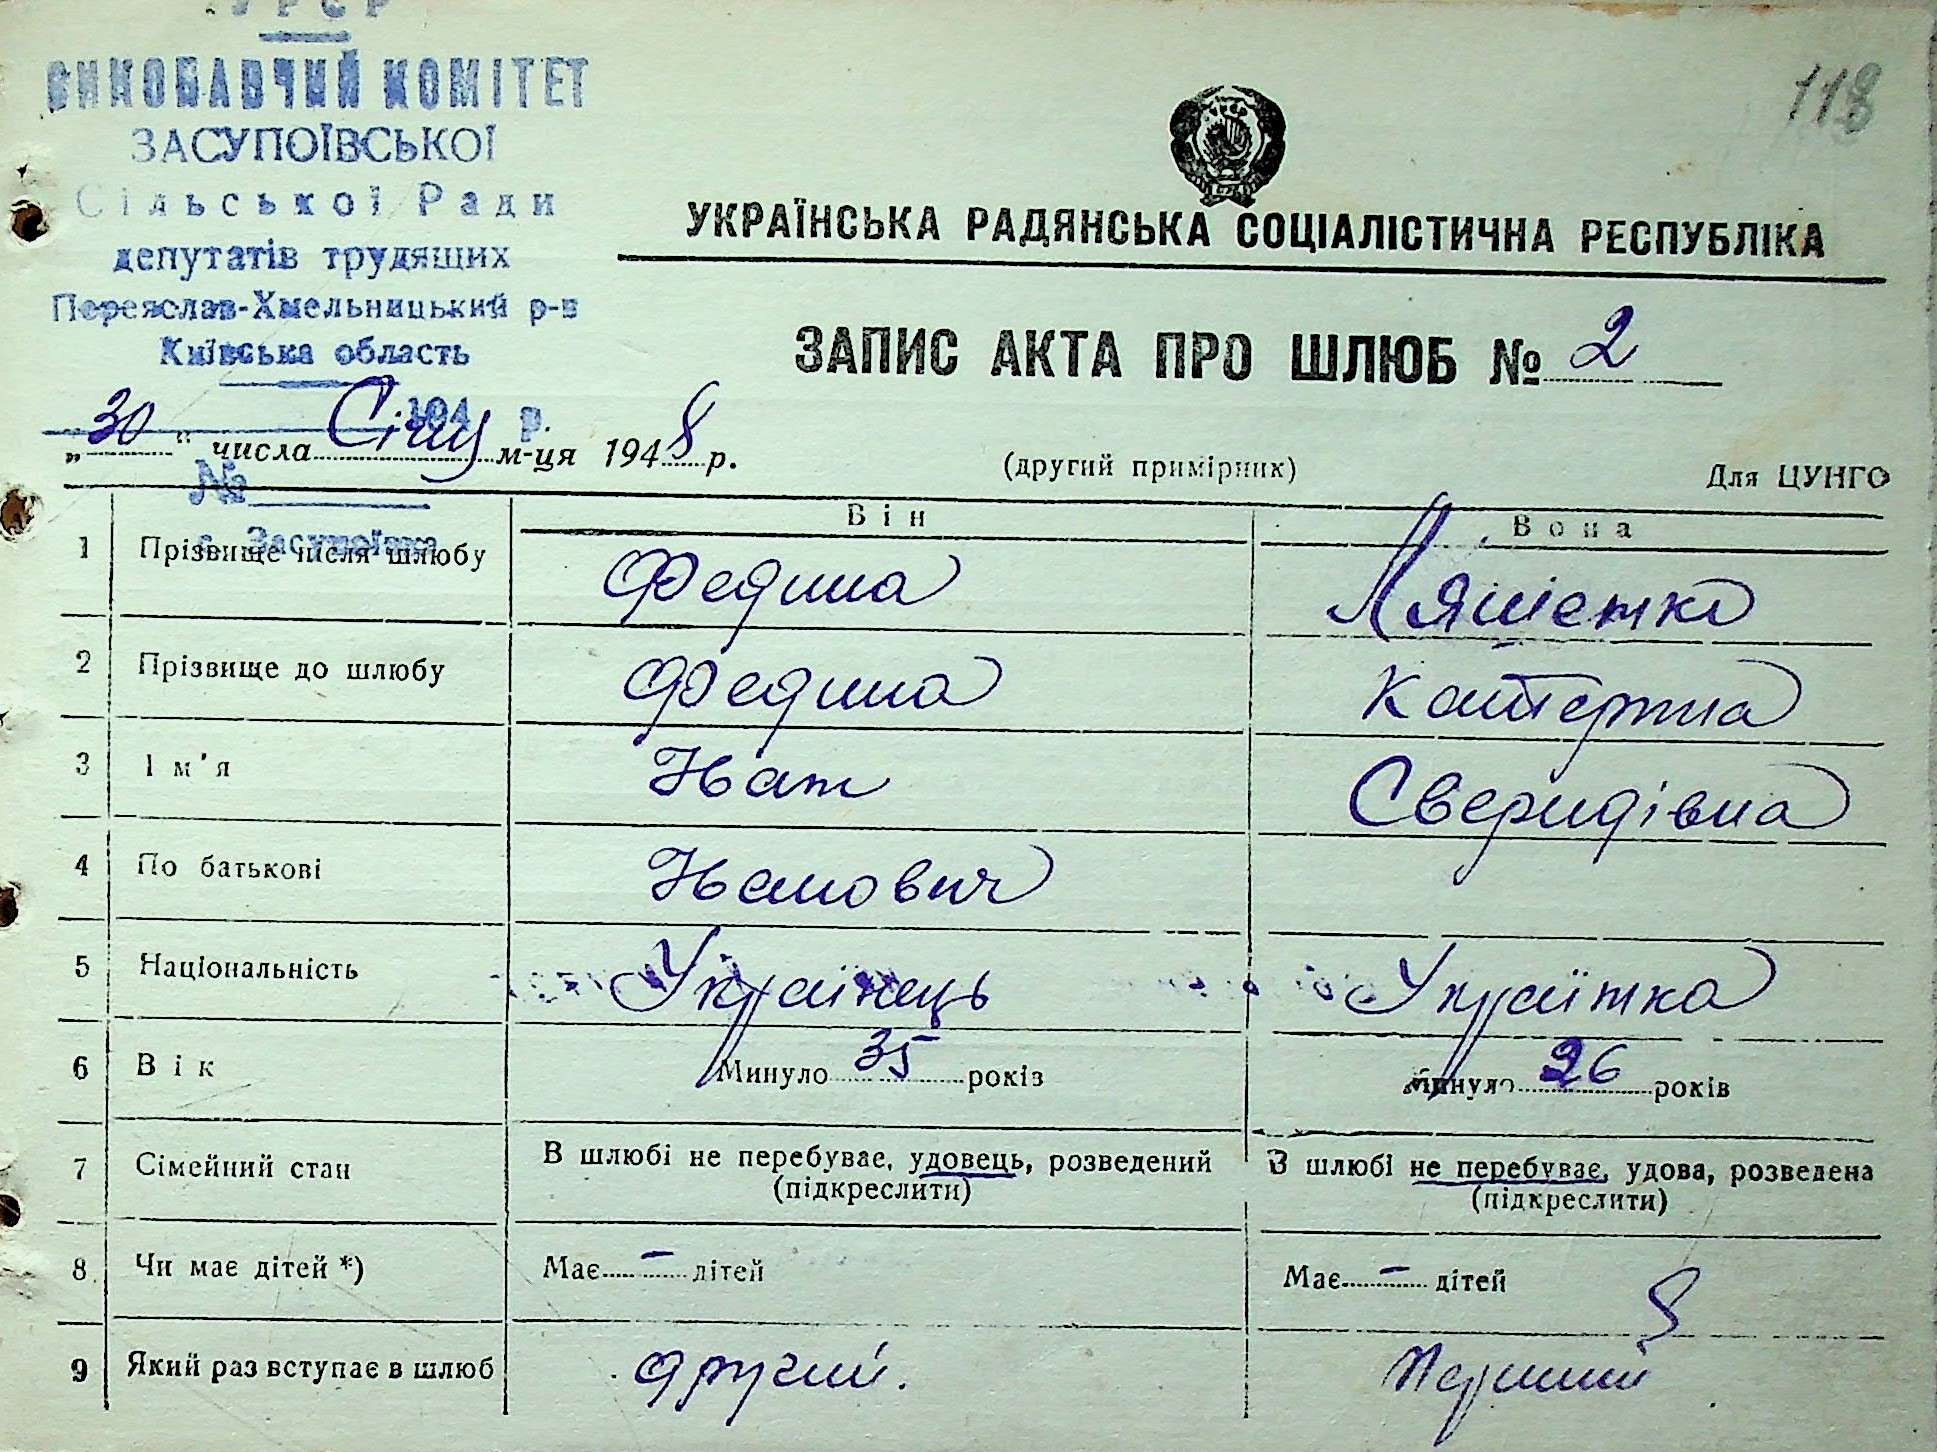 УРСР
ВИКОНАВЧИЙ КОМІТЕТ
ЗАСУПОЇВСЬКОЇ
Сільської Ради
депутатів трудящих
Переяслав-Хмельницький р-н
Київська область
194 р.
№
с. Засупоївка
118
УКРАЇНСЬКА РАДЯНСЬКА СОЦІАЛІСТИЧНА РЕСПУБЛІКА
ЗАПИС АКТА ПРО ШЛЮБ № 2
„30" числа Січня м-ця 1948 р.
(другий примірник) Для ЦУНГО
Він Вона
1 Прізвище після шлюбу Федина Ляшенко
2 Прізвище до шлюбу Федина Катерина
3 Ім'я Іван Сверидівна
4 По батькові Іванович
5 Національність Українець Українка
6 Вік Минуло 35 років Минуло 26 років
7 Сімейний стан В шлюбі не перебуває, удовець, розведений (підкреслити) В шлюбі не перебуває, удова, розведена (підкреслити)
8 Чи має дітей *) Має — дітей Має — дітей
9 Який раз вступає в шлюб другий. Перший